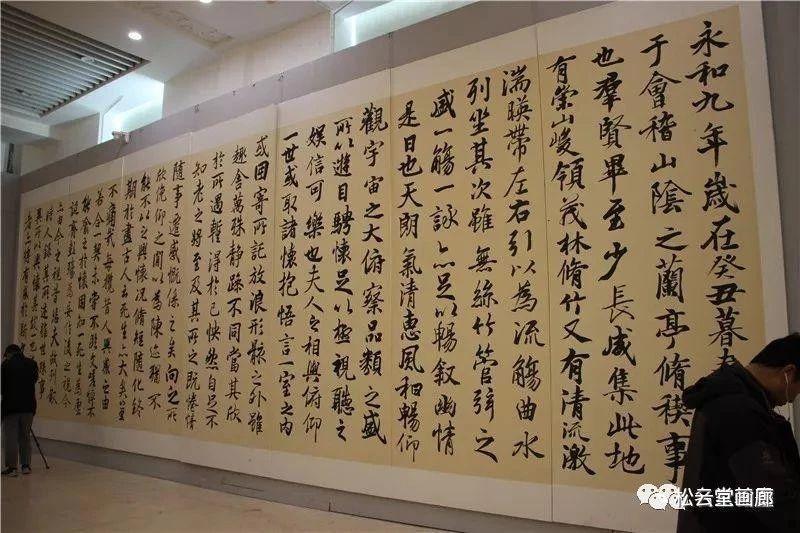 永和九年歲在癸丑暮春
于會稽山陰之蘭亭脩稧事
也羣賢畢至少長咸集此地
有崇山峻領茂林脩竹又有清流激
湍暎帶左右引以為流觴曲水
列坐其次雖無絲竹管弦之
盛一觴一詠亦足以暢叙幽情
是日也天朗氣清惠風和暢仰
觀宇宙之大俯察品類之盛
所以遊目騁懷足以極視聽之
娛信可樂也夫人之相與俯仰
一世或取諸懷抱悟言一室之內
或因寄所託放浪形骸之外雖
趣舍萬殊静躁不同當其欣
於所遇暫得於己快然自足不
知老之將至及其所之既惓情
隨事遷感慨係之矣向之所
欣俛仰之閒以為陳迹猶不
能不以之興懷況脩短隨化終
期於盡古人云死生亦大矣豈
不痛哉每攬昔人興感之由
若合一契未嘗不臨文嗟悼不
能喻之於懷固知一死生為虛
誕齊彭殤為妄作後之視今
亦由今之視昔悲夫故列叙
時人錄其所述雖世殊事
異所以興懷其致一也
松云堂画廊